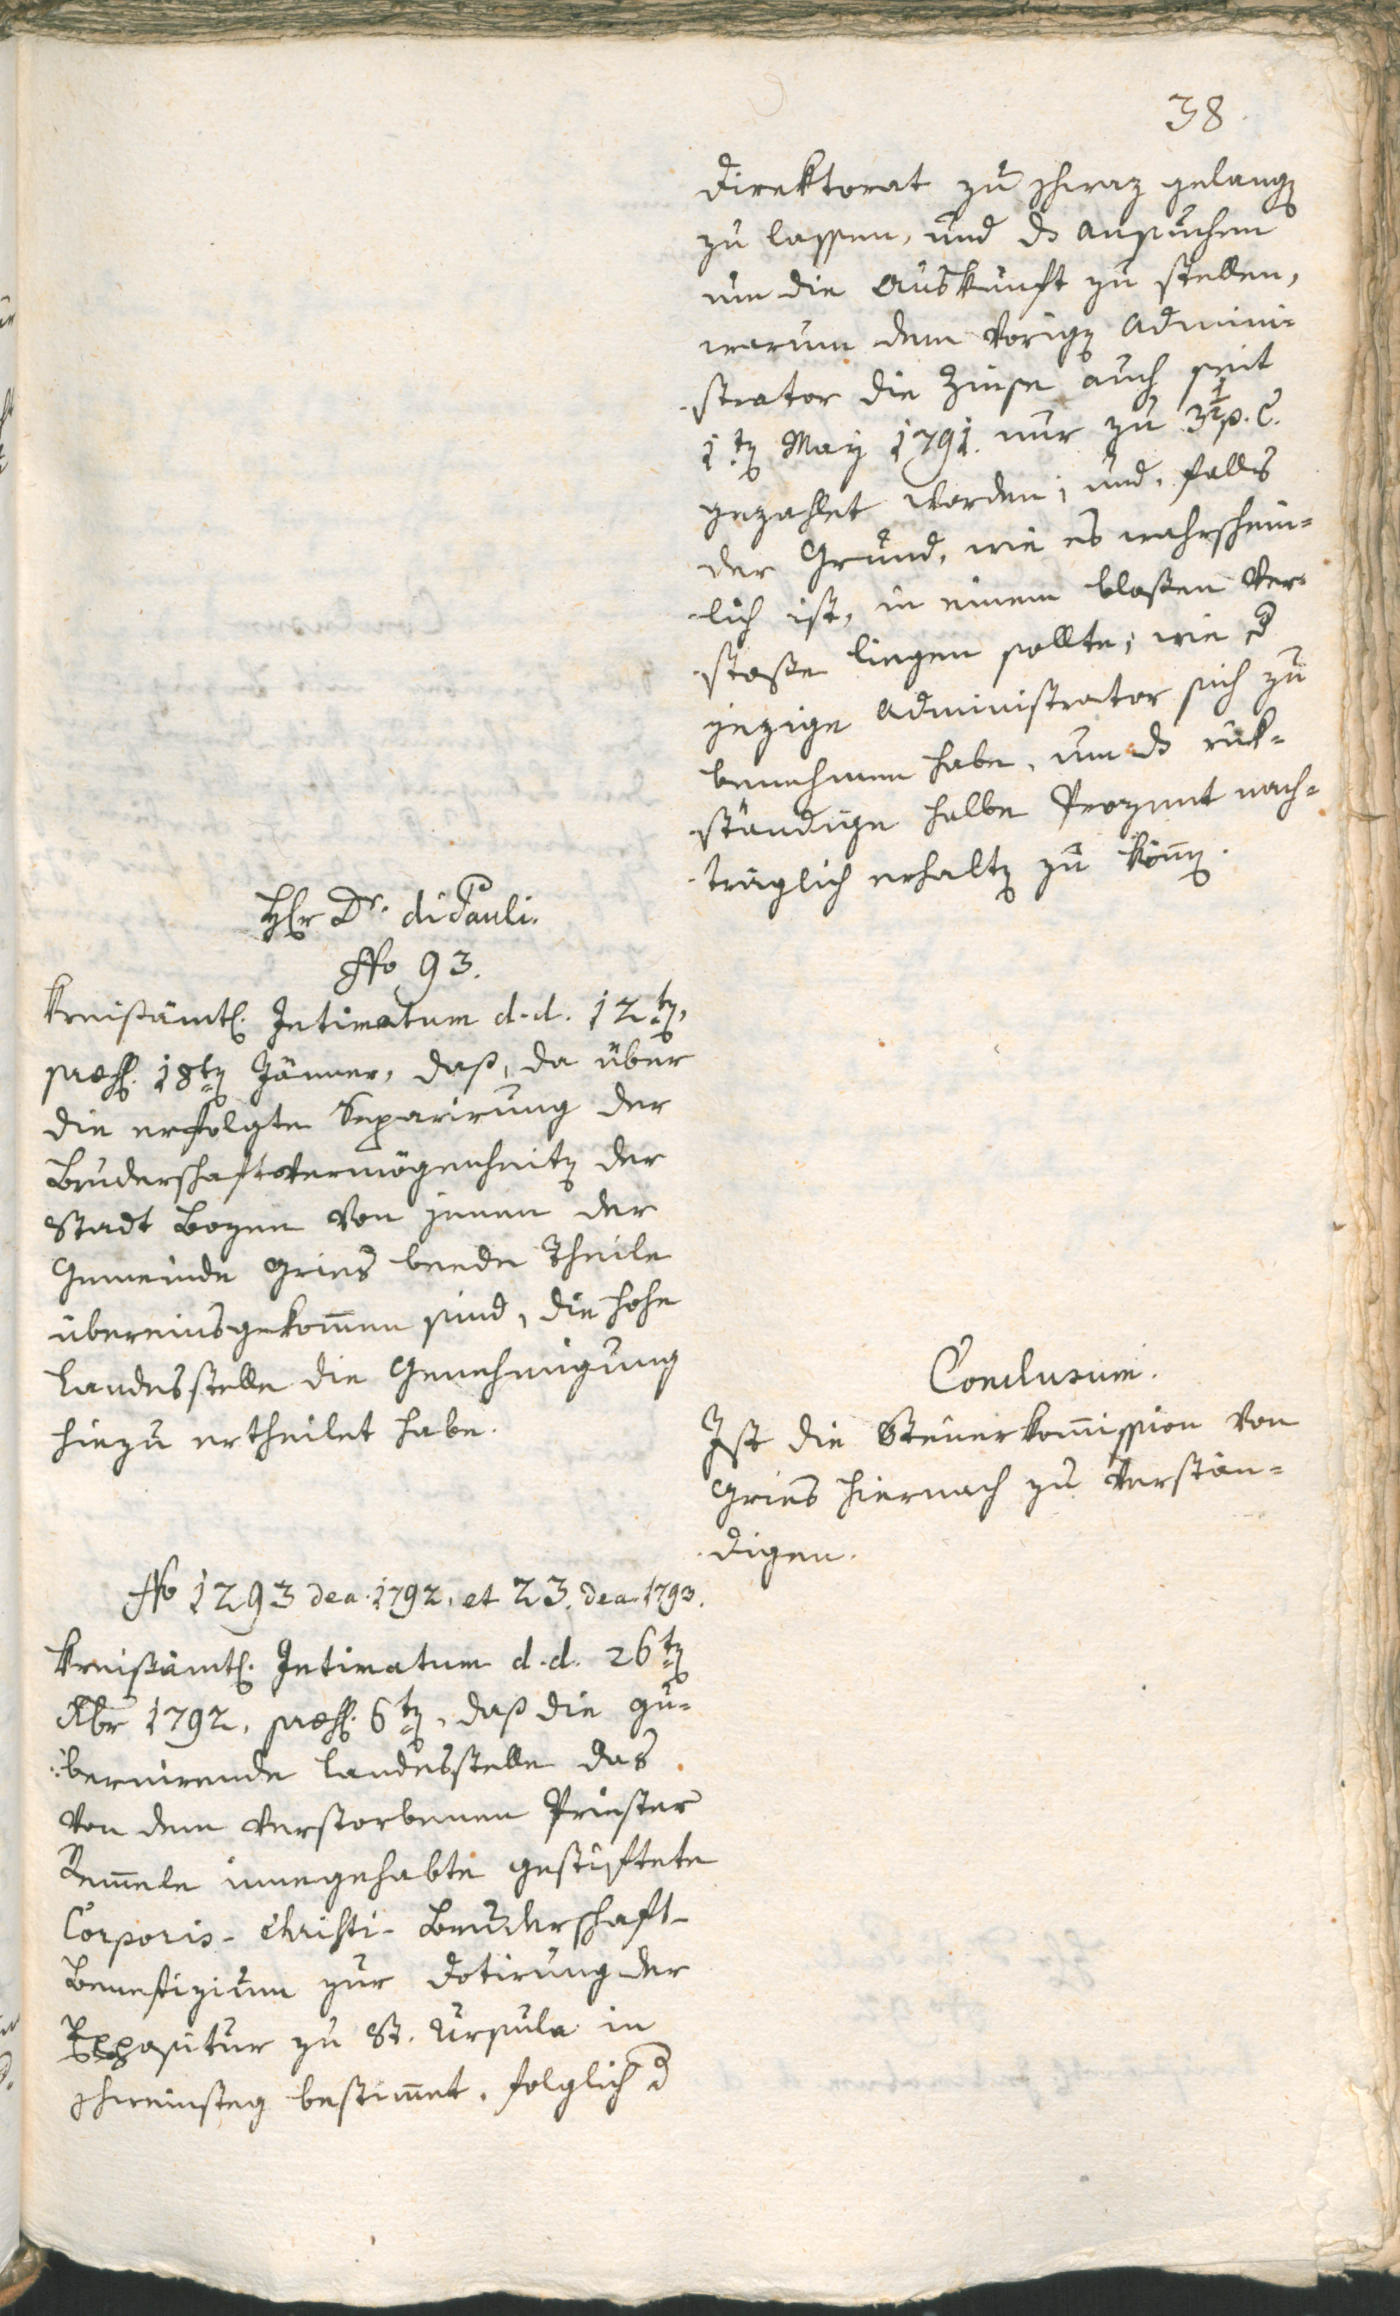 38.
Direktorat zu Schwaz gelangen
zu lassen, und das Ansuchen
um die Auskunft zu stellen,
warum dem vorigen Admini-
strator die Zinse auch seit
1ten May 1791. nur zu 3½ p. C.
gezahlet worden; und, falls
der Grund, wie es wahrschein-
lich ist, in einem bloßen Ver-
stoße liegen sollte; wie der
jezige Administrator sich zu
benehmen habe, um das rük-
ständige halbe Prozent nach-
träglich erhalten zu könen.
Hr Dr. di Pauli.
No 93.
Kreißämtl. Intimatum d. d. 12ten,
præs. 18ten Jänner, daß, da über
die erfolgte Separirung der
Bruderschaftsvermögenheiten der
Stadt Bozen von jenen der
Gemeinde Gries beede Theile
übereinsgekom̄en sind, die hohe
Landesstelle die Genehmigung
hiezu ertheilet habe.
Conclusum.
Ist die Steuerkom̄ission von
Gries hiernach zu verstän-
digen.
No 1293 de a. 1792. et 23. de a. 1793.
Kreißämtl. Intimatum d. d. 26ten
Xbr 1792, præs. 6ten, daß die gu-
bernirende Landesstelle das
von dem verstorbenen Priester
Rem̄ele innegehabte gestiftete
Corporis-Christi-Bruderschaft-
Benefizium zur Dotirung der
Expositur zu St. Ursula in
bestim̄et, folglich der